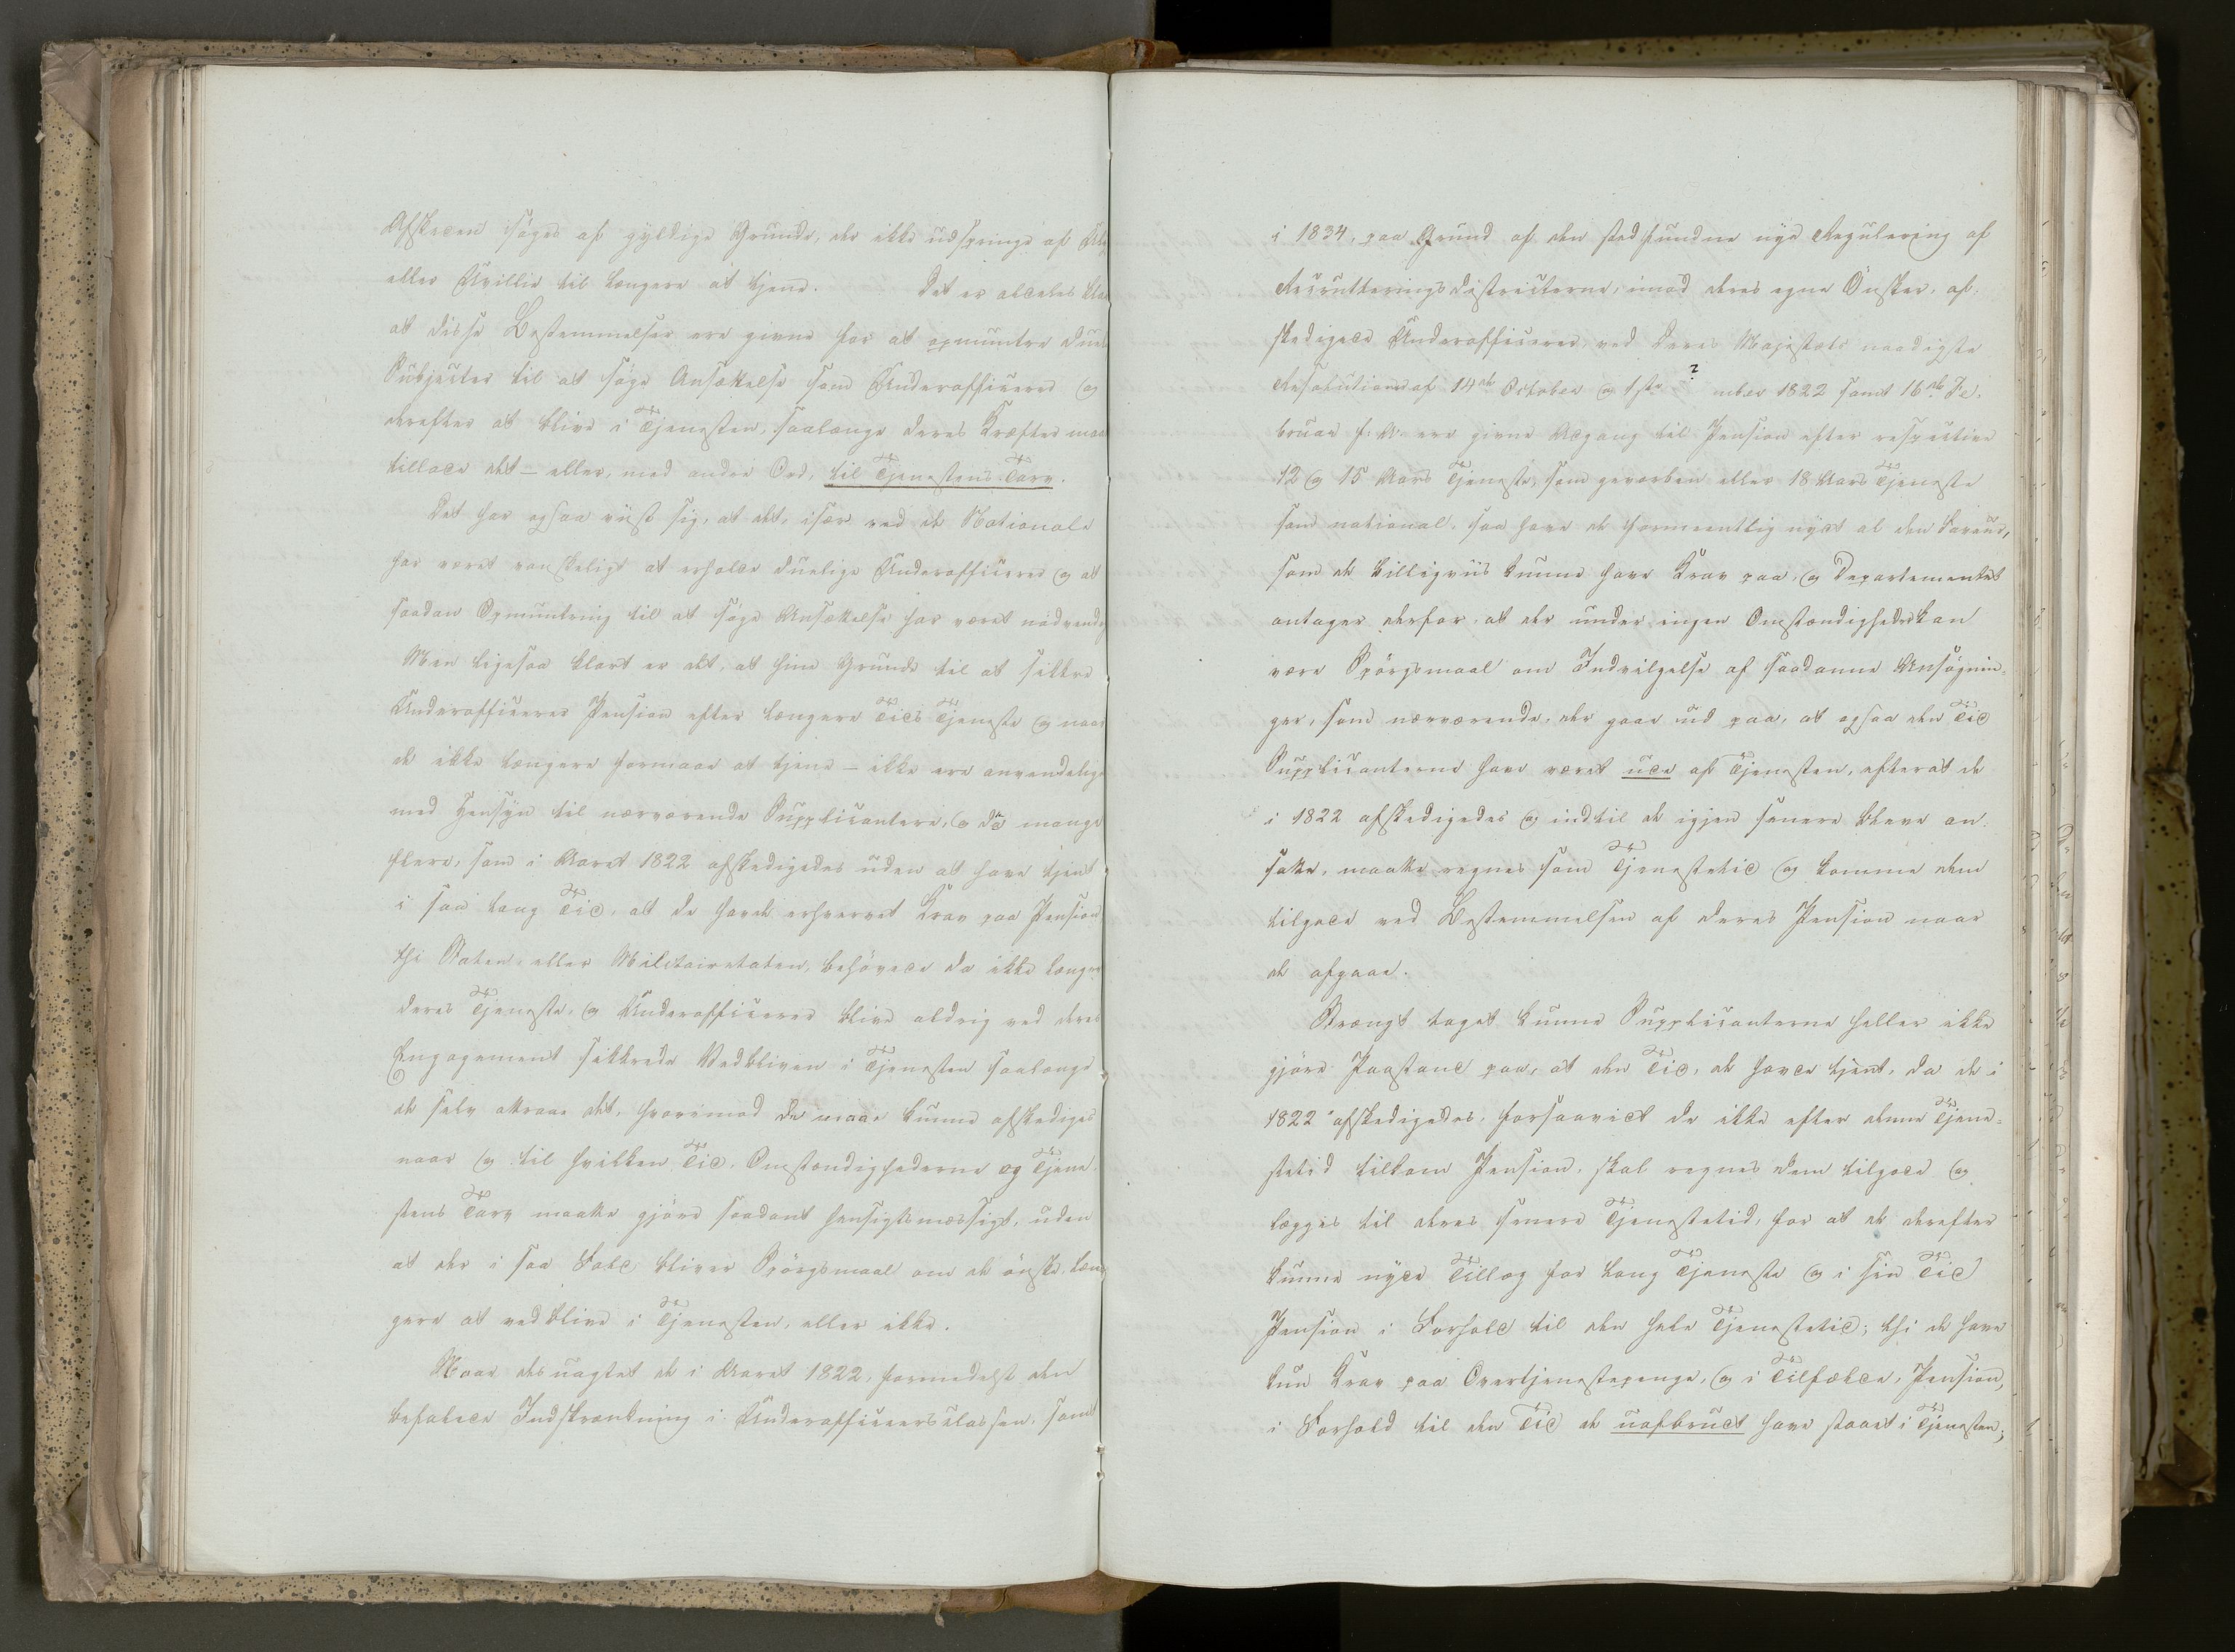 Afskeden søges af gyldige Grunde, der ikke udspringe af
eller Uvillie til længere at tjene. Det er aldeles klar
at disse Bestemmelser ere givne for at opmuntre due
Subjecter til at søge Ansættelse som Underofficerer og
derefter at blive i Tjenesten, saalænge deres Kræfter maa
tillade det – eller, med andre Ord, til Tjenestens Tarv.
Det har ogsaa viist sig, at det, især ved de Nationale
har været vanskeligt at erholde duelige Underofficerer og at
saadan Opmuntring til at søge Ansættelse har været nødvendig
Men ligesaa klart er det, at hine Grunde til at sikkre
Underofficerer Pension efter længere Tids Tjeneste og naar
de ikke længere formaae at tjene – ikke ere anvendelige
med Hensyn til nærværende Supplicantere, og de mange
flere, som i Aaret 1822 afskedigedes uden at have tjent
i saa lang Tid, at de havde erhvervet Krav paa Pension
thi Staten eller Militairetaten, behøvede da ikke længere
deres Tjeneste, og Underofficerer blive aldrig ved deres
Engagement sikkrede Vedbliven i Tjenesten saalænge
de selv attraae det, hvorimod de maae kunne afskediges
naar og til hvilken Tid, Omstændighederne og Tjene
stens Tarv maatte gjøre saadant hensigtsmæssigt, uden
at der i saa Fald bliver Spörgsmaal om de ønske læn
gere at vedblive i Tjenesten, eller ikke.
Naar desuagtet de i Aaret 1822, formedelst den
befalede Indskrænkning i Underofficeersclassen, samt
i 1834, paa Grund af den stedfundne nye Regulering af
Recrutteringsdistricterne, imod deres egne Ønsker, af-
skedigede Underofficerer, ved Deres Majestæts naadigste
Resolutioner af 14de October og 1ste ? mber 1822 samt 16de Fe-
bruar f. A. ere givne Adgang til Pension efter respective
12 og 15 Aars Tjeneste, som gevorben eller 18 Aars Tjeneste
som national, saa have de formeentlig nydt al den Faveur,
som de billigviis kunne have Krav paa, og Departementet
antager derfor, at der under ingen Omstændigheder kan
være Spörgsmaal om Indvilgelse af saadanne Ansøgnin-
ger, som nærværende, der gaae ud paa, at ogsaa den Tid
Supplicanterne have været ude af Tjenesten, efterat de
i 1822 afskedigedes og indtil de igjen senere bleve an-
satte, maatte regnes som Tjenestetid og komme dem
tilgode ved Bestemmelsen af deres Pension naar
de afgaae.
Strængt taget kunne Supplicanterne heller ikke
gjøre Paastand paa, at den Tid, de havde tjent, da de i
1822 afskedigedes, forsaavidt de ikke efter denne Tjene-
stetid tilkom Pension, skal regnes dem tilgode og
lægges til deres senere Tjenestetid, for at de derefter
kunne nyde Tillæg for lang Tjeneste og i sin Tid
Pension i Forhold til den hele Tjenestetid; thi de have
kun Krav paa Overtjenestepenge, og i Tilfælde, Pension,
i Forhold til den Tid de uafbrudt have staaet i Tjenesten;